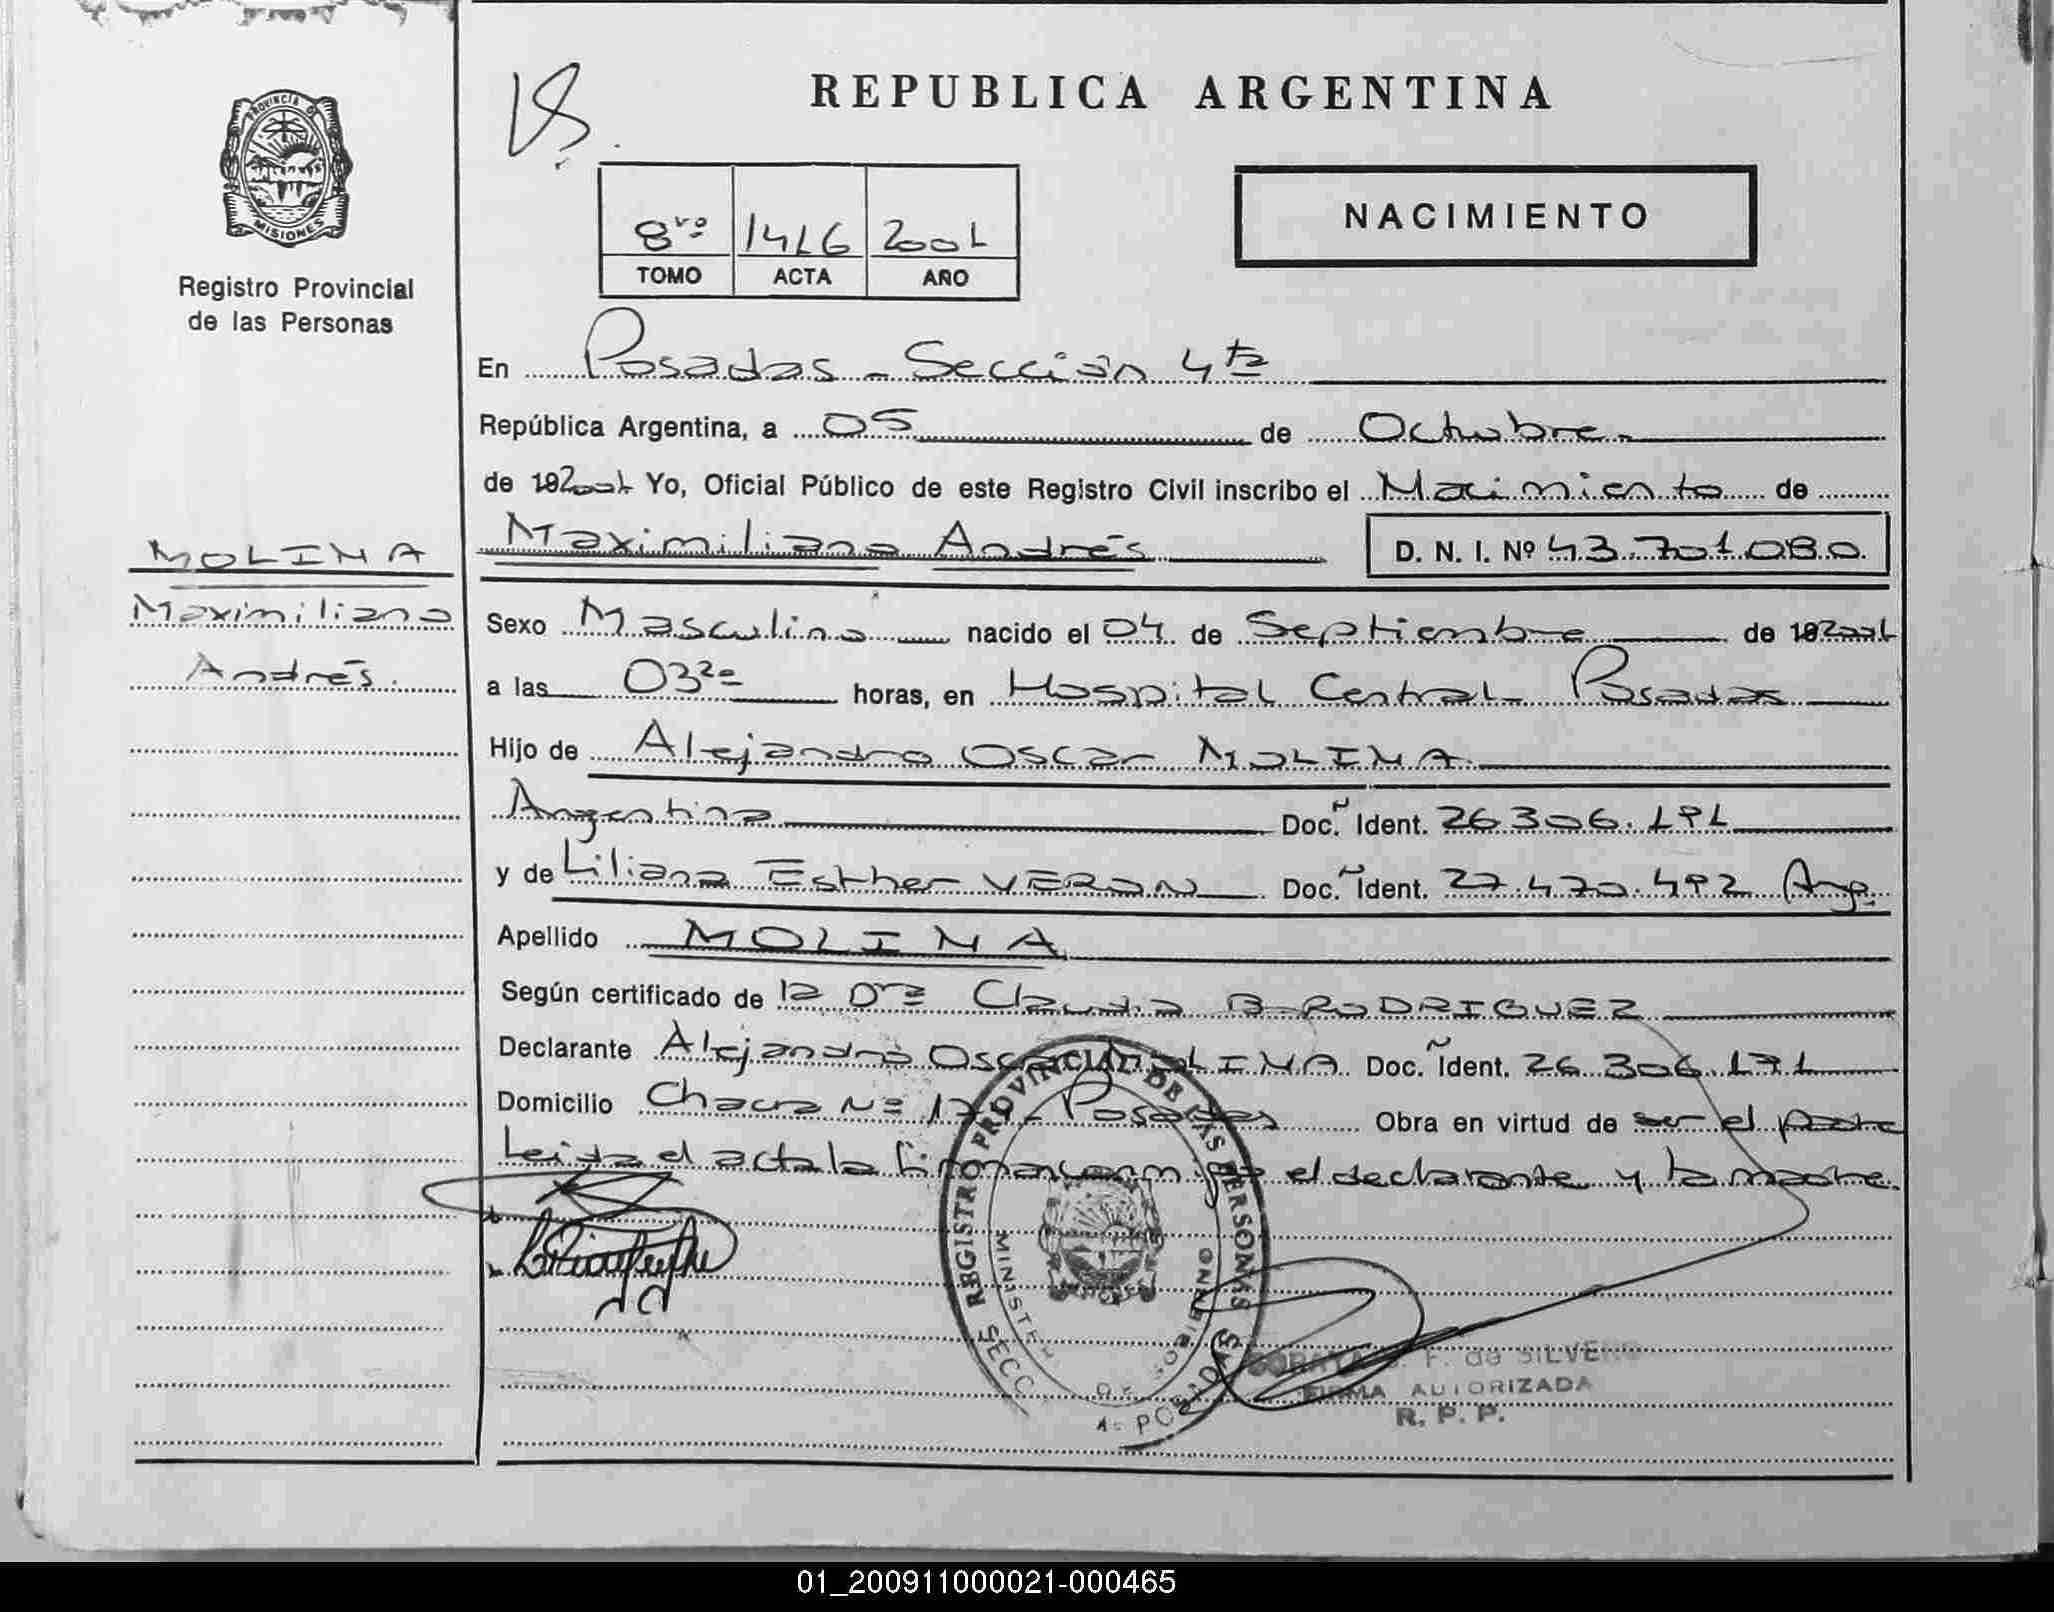 REPUBLICA ARGENTINA
PROVINCIA DE
MISIONES
Registro Provincial
de las Personas
NACIMIENTO
8vo 1416 2001
TOMO ACTA AÑO
En Posadas - Sección 4ta
República Argentina, a 05 de Octubre
de 192001 Yo, Oficial Público de este Registro Civil inscribo el Nacimiento de
Maximiliano Andrés D. N. I. Nº 43.701.080
MOLINA
Maximiliano
Andrés.
Sexo Masculino nacido el 04 de Septiembre de 192001
a las 03 20 horas, en Hospital Central Posadas
Hijo de Alejandro Oscar MOLINA
Argentina Doc. Ident. 26.306.191
y de Liliana Esther VERON Doc. Ident. 27.470.492 Arg.
Apellido MOLINA
Según certificado de la Dra Claudia B. RODRIGUEZ
Declarante Alejandro Oscar MOLINA Doc. Ident. 26.306.191
Domicilio Chacra Nº Posadas Obra en virtud de ser el padre
Leida el acta la firman conmigo el declarante y la madre.
REGISTRO PROVINCIAL DE LAS PERSONAS
SECC. 4- POSADAS
MINISTERIO DE GOBIERNO
F. de SILVERO
FIRMA AUTORIZADA
R. P. P.
01_200911000021-000465